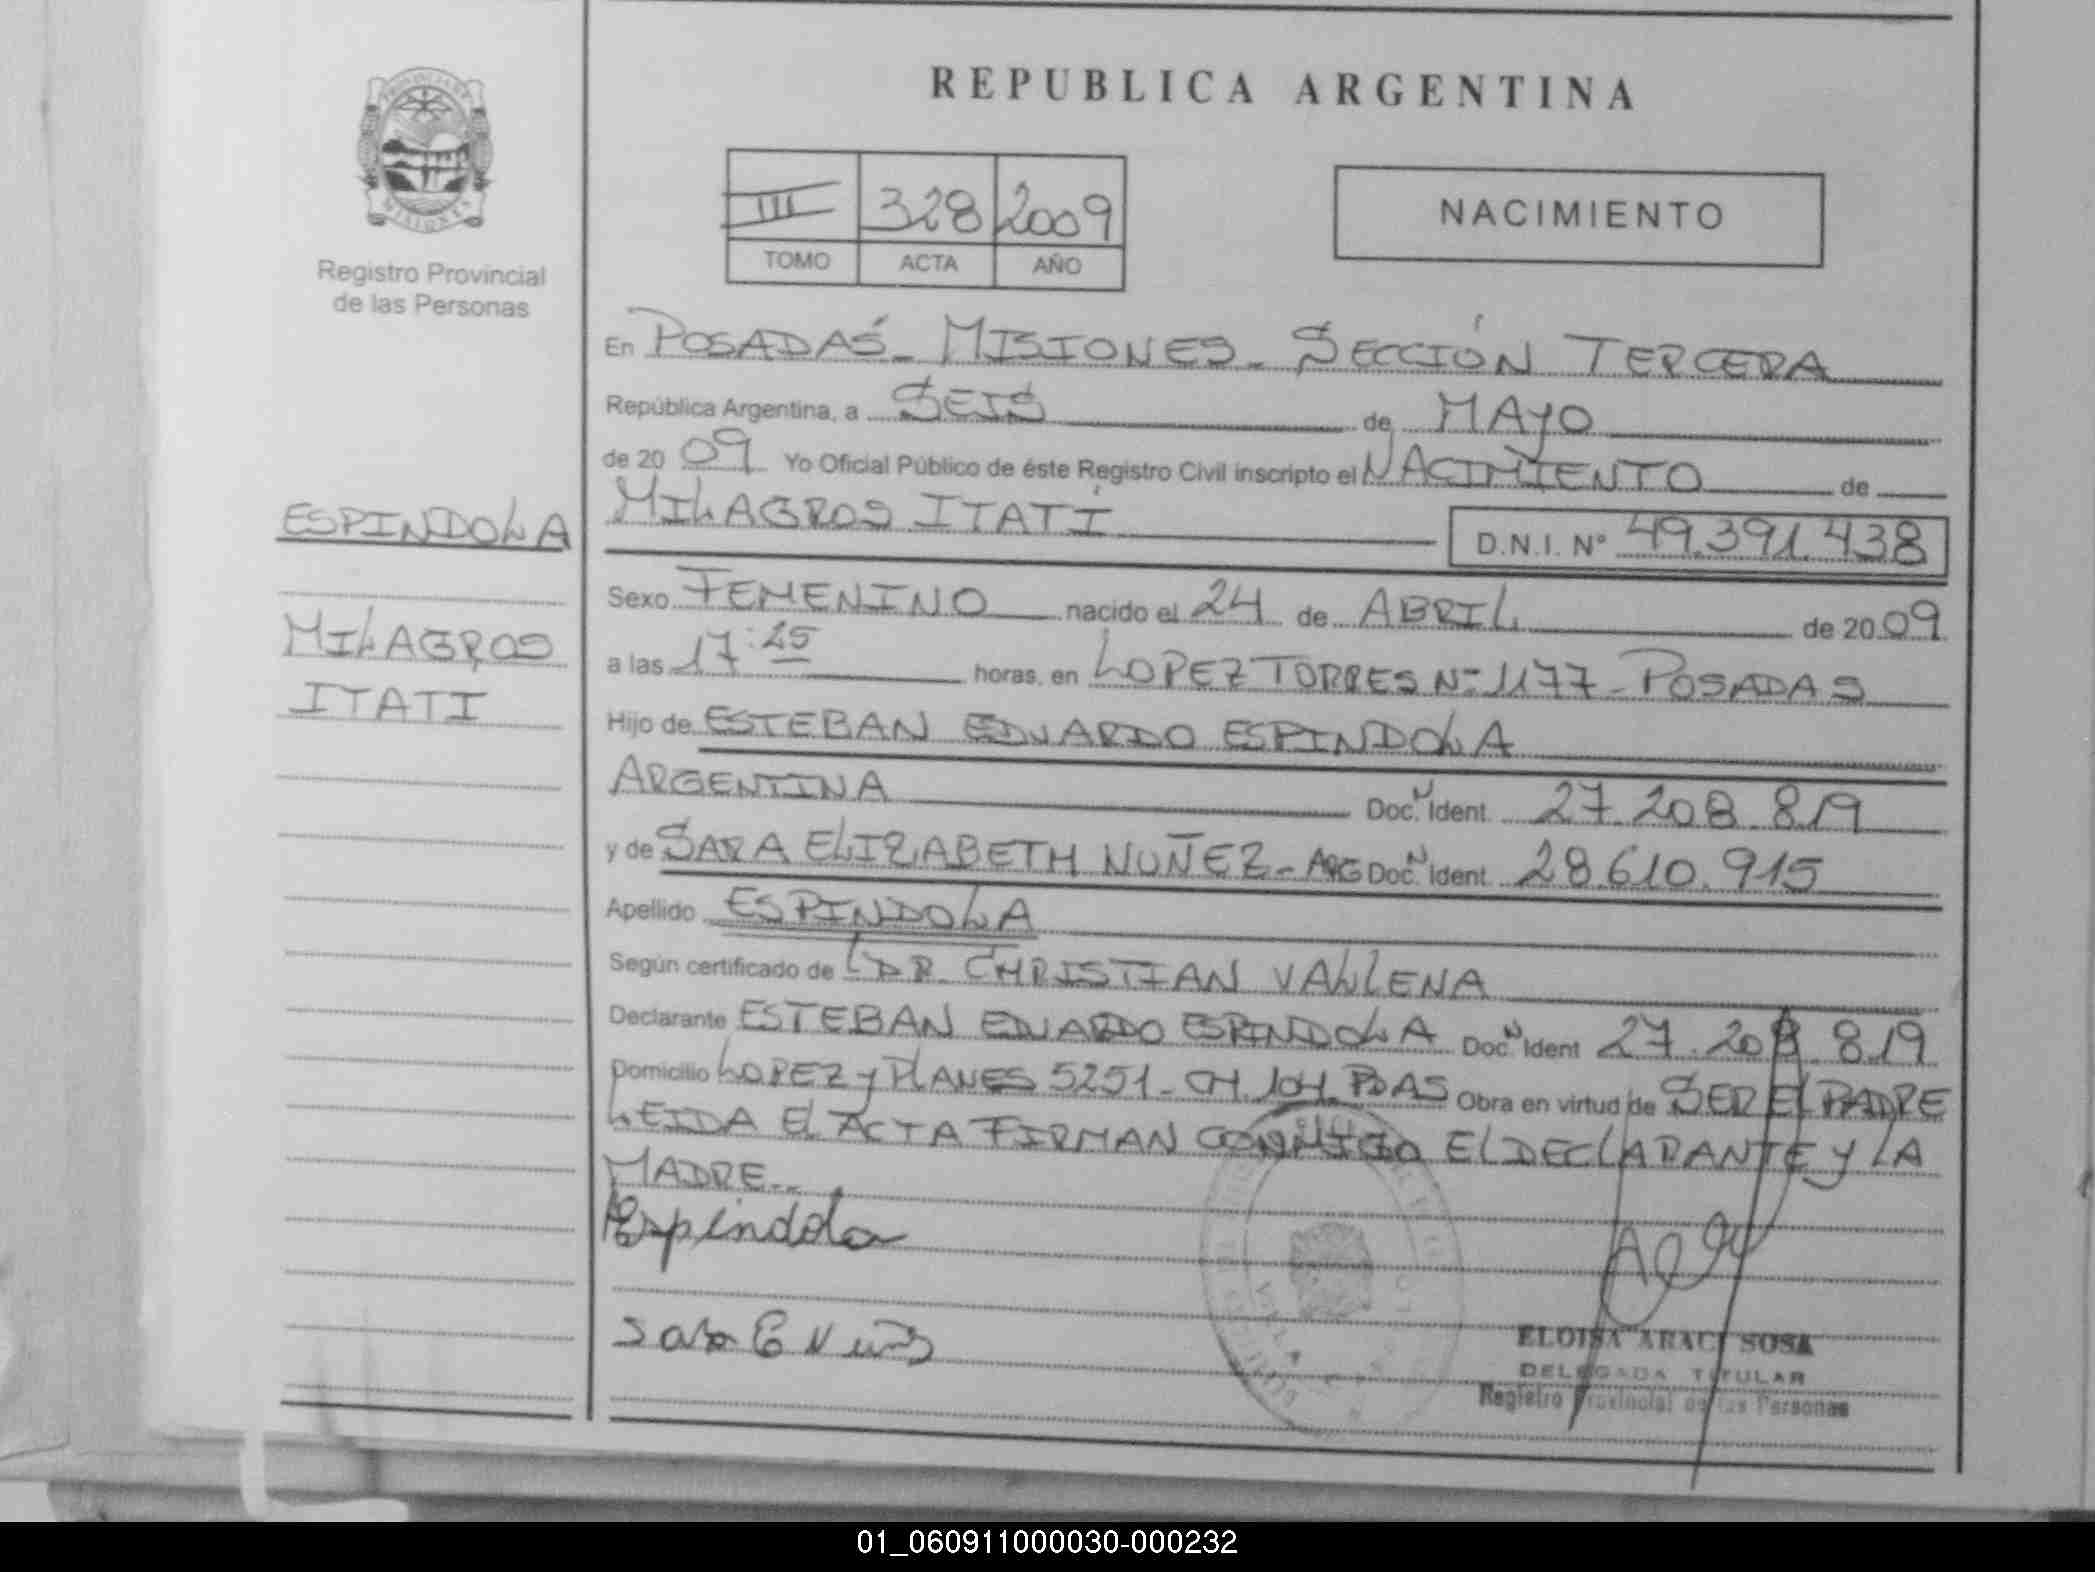 REPUBLICA ARGENTINA
Registro Provincial
de las Personas
III 328 2009
TOMO ACTA AÑO
NACIMIENTO
En POSADAS - MISIONES - SECCIÓN TERCERA
República Argentina, a SEIS de MAYO
de 20 09 Yo Oficial Público de éste Registro Civil inscripto el NACIMIENTO de
MILAGROS ITATÍ D.N.I. Nº 49.391.438
ESPINDOLA
MILAGROS
ITATI
Sexo FEMENINO nacido el 24 de ABRIL de 20 09
a las 17:25 horas, en LOPEZ TORRES Nº 1177 - POSADAS
Hijo de ESTEBAN EDUARDO ESPINDOLA
ARGENTINA Doc. N Ident. 27.208.819
y de SARA ELIZABETH NUÑEZ - ARG Doc. N Ident. 28.610.915
Apellido ESPINDOLA
Según certificado de DR. CHRISTIAN VALLENA
Declarante ESTEBAN EDUARDO ESPINDOLA Doc. N Ident 27.208.819
Domicilio LOPEZ y PLANES 5251 - CH. 104. PDAS Obra en virtud de SER EL PADRE
LEIDA EL ACTA FIRMAN CONMIGO EL DECLARANTE Y LA
MADRE.
Espindola
Sara E Nuñ
ELOISA ARACI SOSA
DELEGADA TITULAR
Registro Provincial de las Personas
01_060911000030-000232